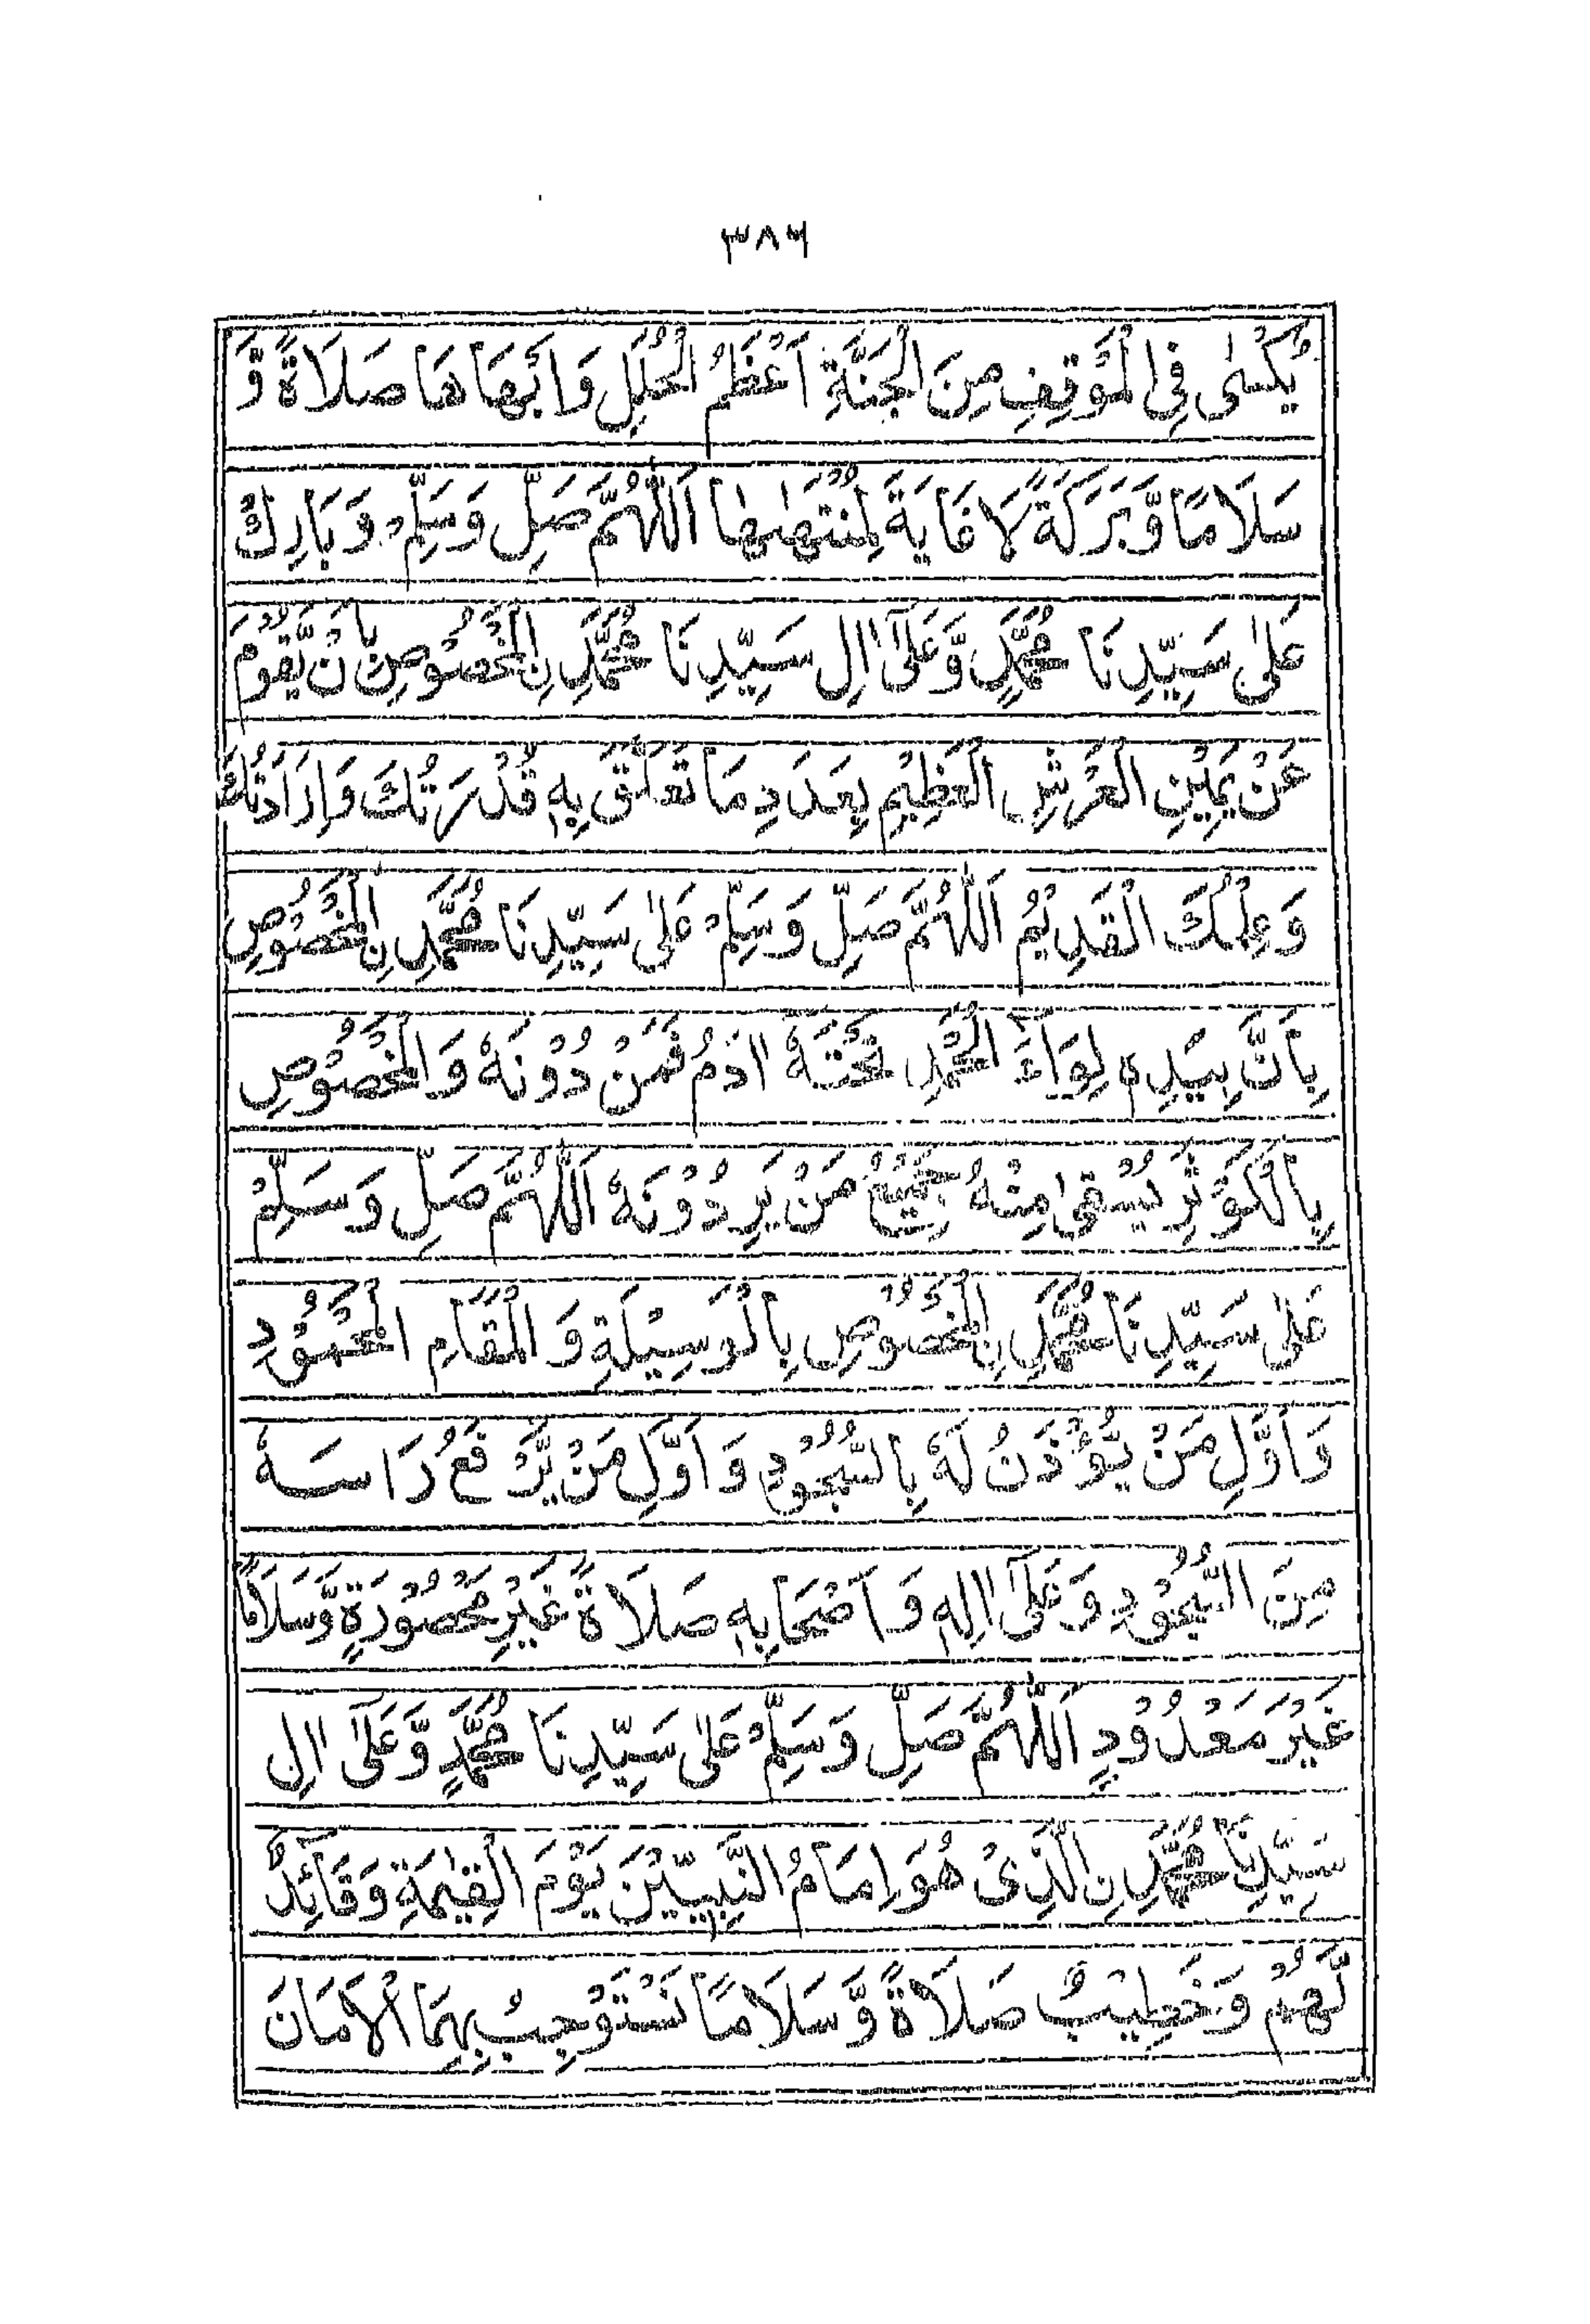 ٣٨٦
يُكْسٰى فِي الْمَوْقِفِ مِنَ الْجَنَّةِ اَعْظَمُ الْحُلَلِ وَاَبْهَاهَا صَلَاةً وَّ
سَلَامًا وَّبَرَكَةً لَا غَايَةَ لِمُنْتَهٰىهَا اَللّٰهُمَّ صَلِّ وَسَلِّمْ وَبَارِكْ
عَلٰى سَيِّدِنَا مُحَمَّدٍ وَّعَلٰٓى اٰلِ سَيِّدِنَا مُحَمَّدِ نِ الْمَخْصُوْصِ بِاَنْ يَّقُوْمَ
عَنْ يَمِيْنِ الْعَرْشِ الْعَظِيْمِ بِعَدَدِ مَا تَعَلَّقَ بِهٖ قُدْرَتُكَ وَاِرَادَتُكَ
وَعِلْمُكَ الْقَدِيْمُ اَللّٰهُمَّ صَلِّ وَسَلِّمْ عَلٰى سَيِّدِنَا مُحَمَّدِ نِ الْمَخْصُوْصِ
بِاَنَّ بِيَدِهٖ لِوَآءَ الْحَمْدِ تَحْتَهٗ اٰدَمُ فَمَنْ دُوْنَهٗ وَالْمَخْصُوْصِ
بِالْكَوْثَرِ يُسْقٰى مِنْهُ جَمِيْعُ مَنْ يَرِدُوْنَهٗ اَللّٰهُمَّ صَلِّ وَسَلِّمْ
عَلٰى سَيِّدِنَا مُحَمَّدِ نِ الْمَخْصُوْصِ بِالْوَسِيْلَةِ وَالْمَقَامِ الْمَحْمُوْدِ
وَاَوَّلِ مَنْ يُّؤْذَنُ لَهٗ بِالسُّجُوْدِ وَاَوَّلِ مَنْ يَّرْفَعُ رَاسَهٗ
مِنَ السُّجُوْدِ وَعَلٰٓى اٰلِهٖ وَاَصْحَابِهٖ صَلَاةً غَيْرَ مَحْصُوْرَةٍ وَّسَلَامًا
غَيْرَ مَعْدُوْدٍ اَللّٰهُمَّ صَلِّ وَسَلِّمْ عَلٰى سَيِّدِنَا مُحَمَّدٍ وَّعَلٰٓى اٰلِ
سَيِّدِنَا مُحَمَّدِ نِ الَّذِىْ هُوَ اِمَامُ النَّبِيِّيْنَ يَوْمَ الْقِيٰمَةِ وَقَآئِدٌ
لَّهُمْ وَخَطِيْبٌ صَلَاةً وَّسَلَامًا نَسْتَوْجِبُ بِهِمَا الْاَمَانَ